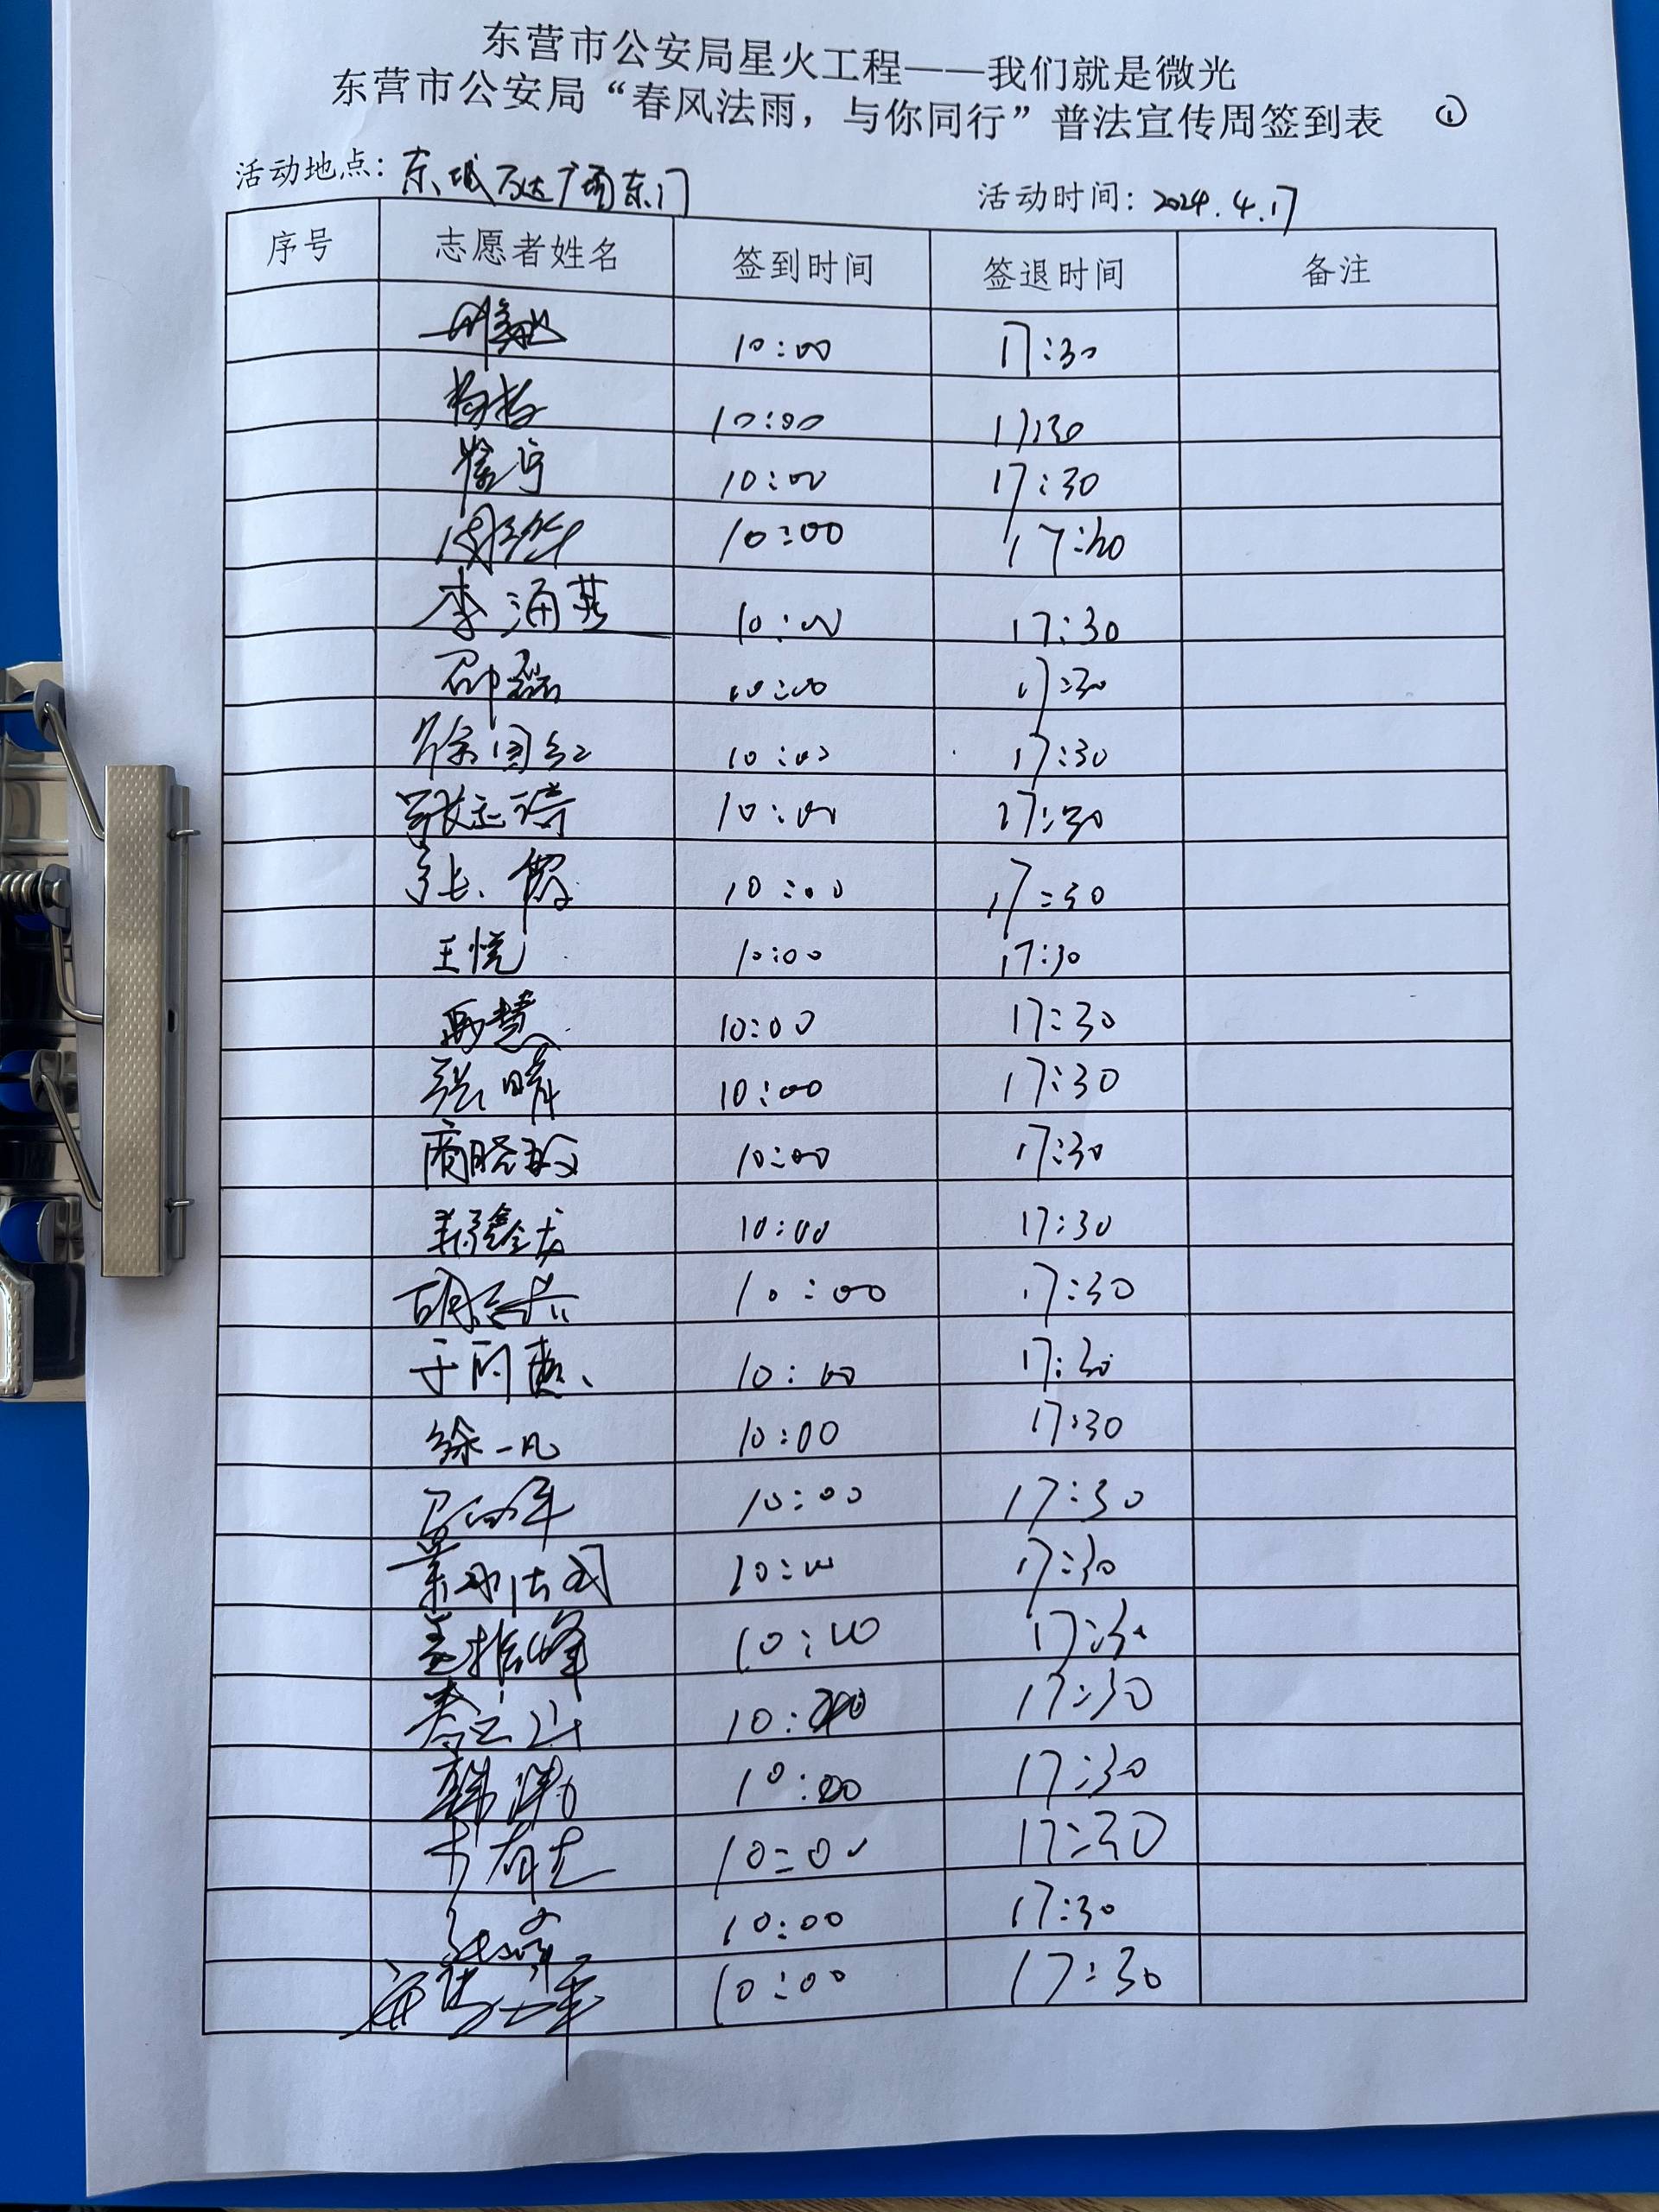 东营市公安局星火工程——我们就是微光
东营市公安局“春风法雨，与你同行”普法宣传周签到表 ①
活动地点：东城万达广场东门 活动时间：2024.4.17
序号 志愿者姓名 签到时间 签退时间 备注
10:00 17:30
杨哲 10:00 17:30
徐宁 10:00 17:30
10:00 17:30
李海燕 10:00 17:30
邵磊 10:00 17:30
徐国红 10:00 17:30
10:00 17:30
张霞 10:00 17:30
王悦 10:00 17:30
10:00 17:30
张晴 10:00 17:30
商晓敏 10:00 17:30
10:00 17:30
10:00 17:30
10:00 17:30
徐一凡 10:00 17:30
10:00 17:30
10:00 17:30
盖振峰 10:00 17:30
10:00 17:30
韩涛 10:00 17:30
10:00 17:30
10:00 17:30
10:00 17:30